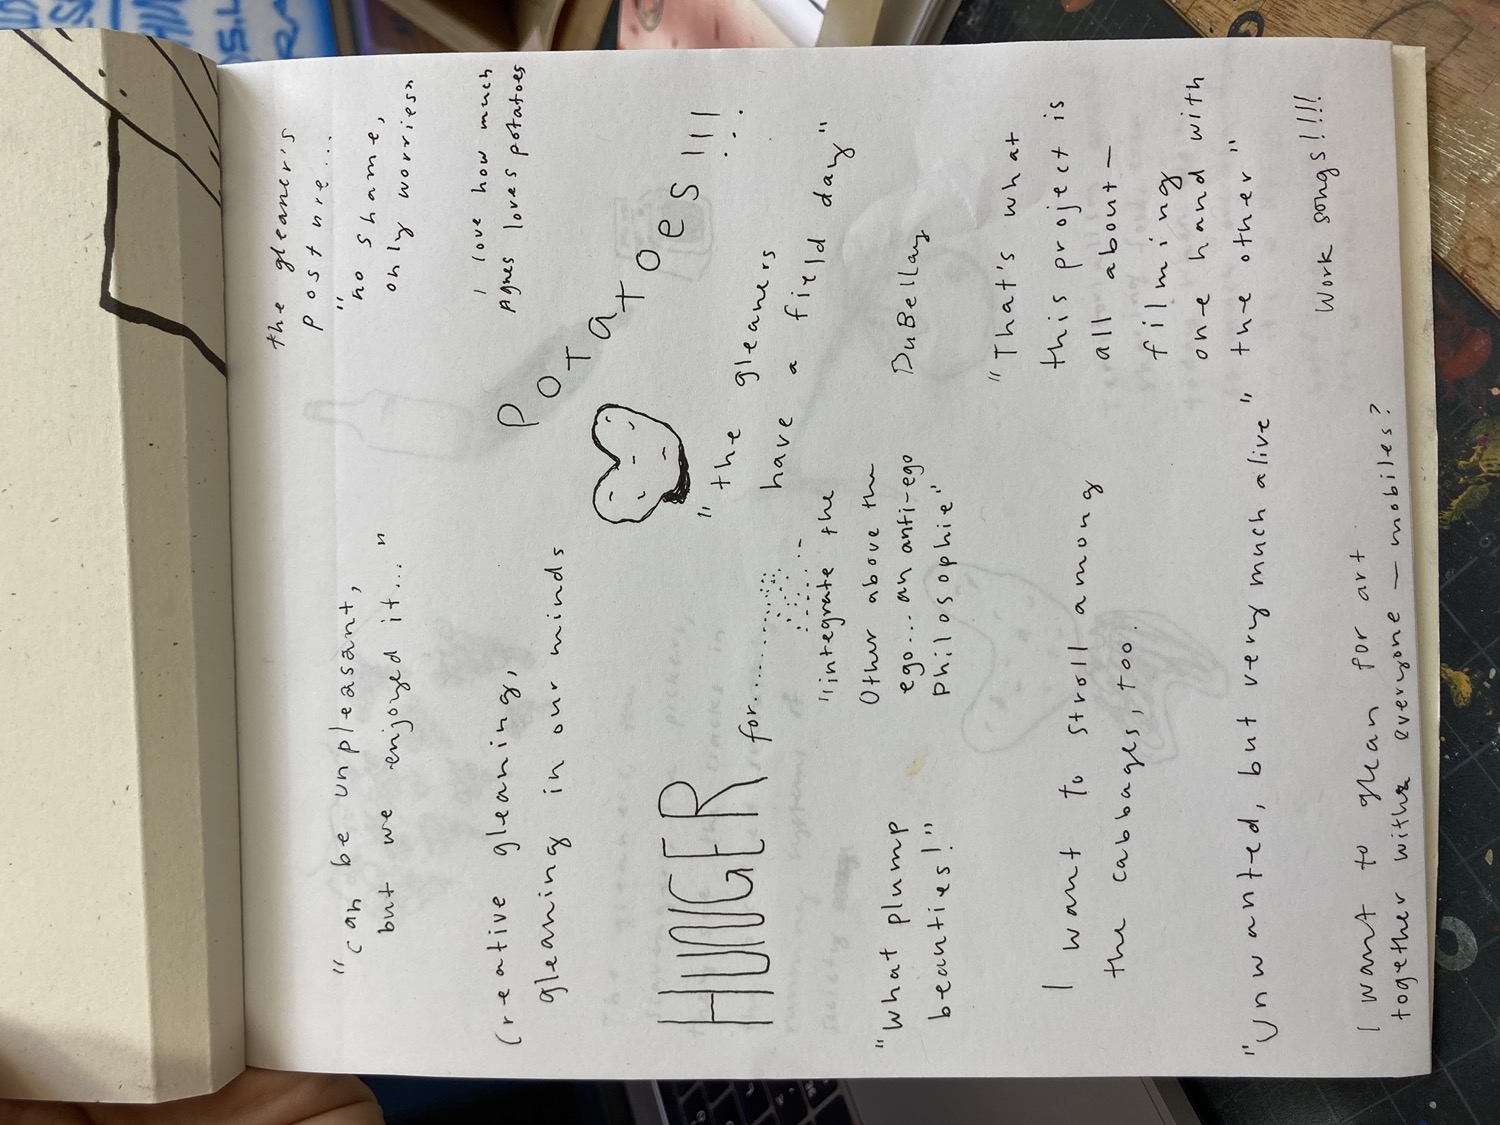 the gleaner's
posture...
"can be unpleasant,
but we enjoyed it..."
"no shame,
only worries"
Creative gleaning,
gleaning in our minds
I love how much
Agnes loves potatoes
POTaToes!!!
HUNGER for..........
"the gleaners
have a field day"
"integrate the
Other above the
ego... an anti-ego
philosophie"
DuBellay
"What plump
beauties!"
I want to stroll among
the cabbages, too.
"That's what
this project is
all about—
filming
one hand with
the other"
"Unwanted, but very much alive"
Work songs!!!!
I want to glean for art
together with everyone — mobiles?